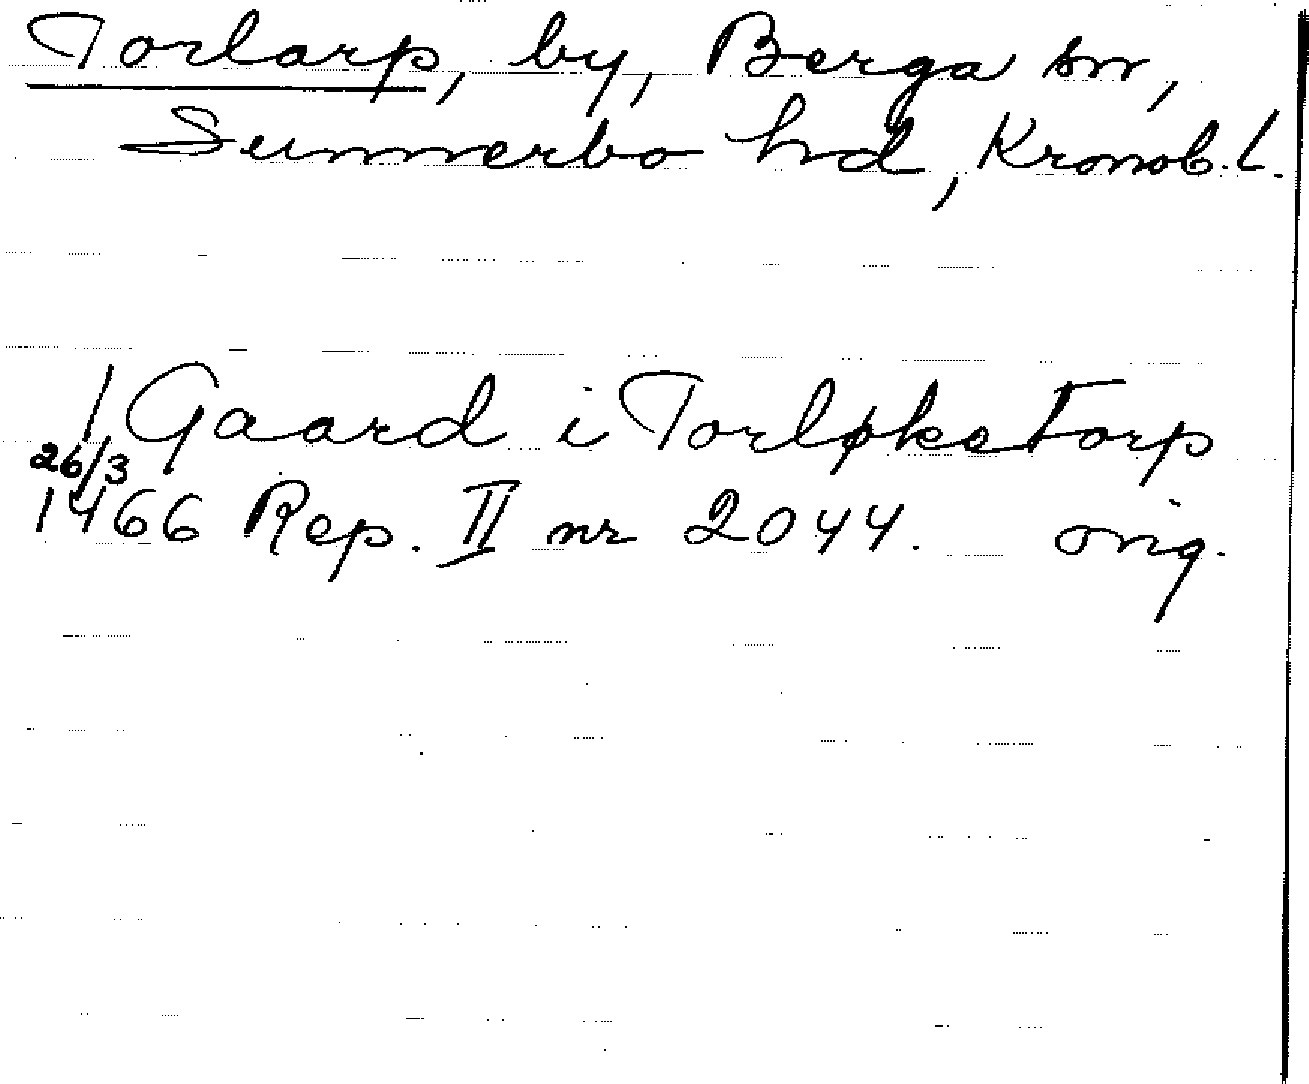 Torlarp, by, Berga sn,
Sunnerbo hd, Kronob. l.
1 Gaard i Torløketorp
26/3
1466 Rep. II nr 2044. orig.